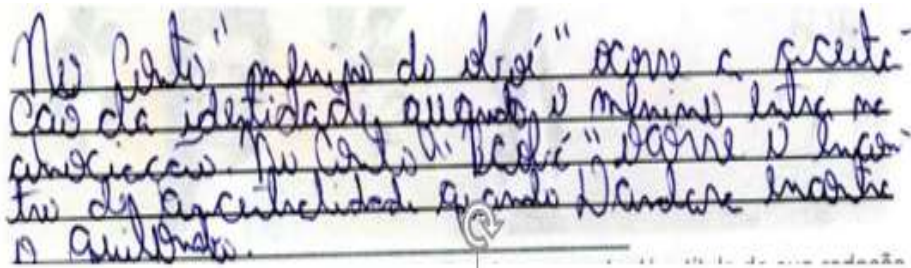 No Conto "menino do Orí" ocorre a aceita-
ção da identidade, quando o menino entra na
associação. No Conto "" ocorre o encon-
tro da ancestralidade quando Dandara encontra
o quilombo.
título da sua redação